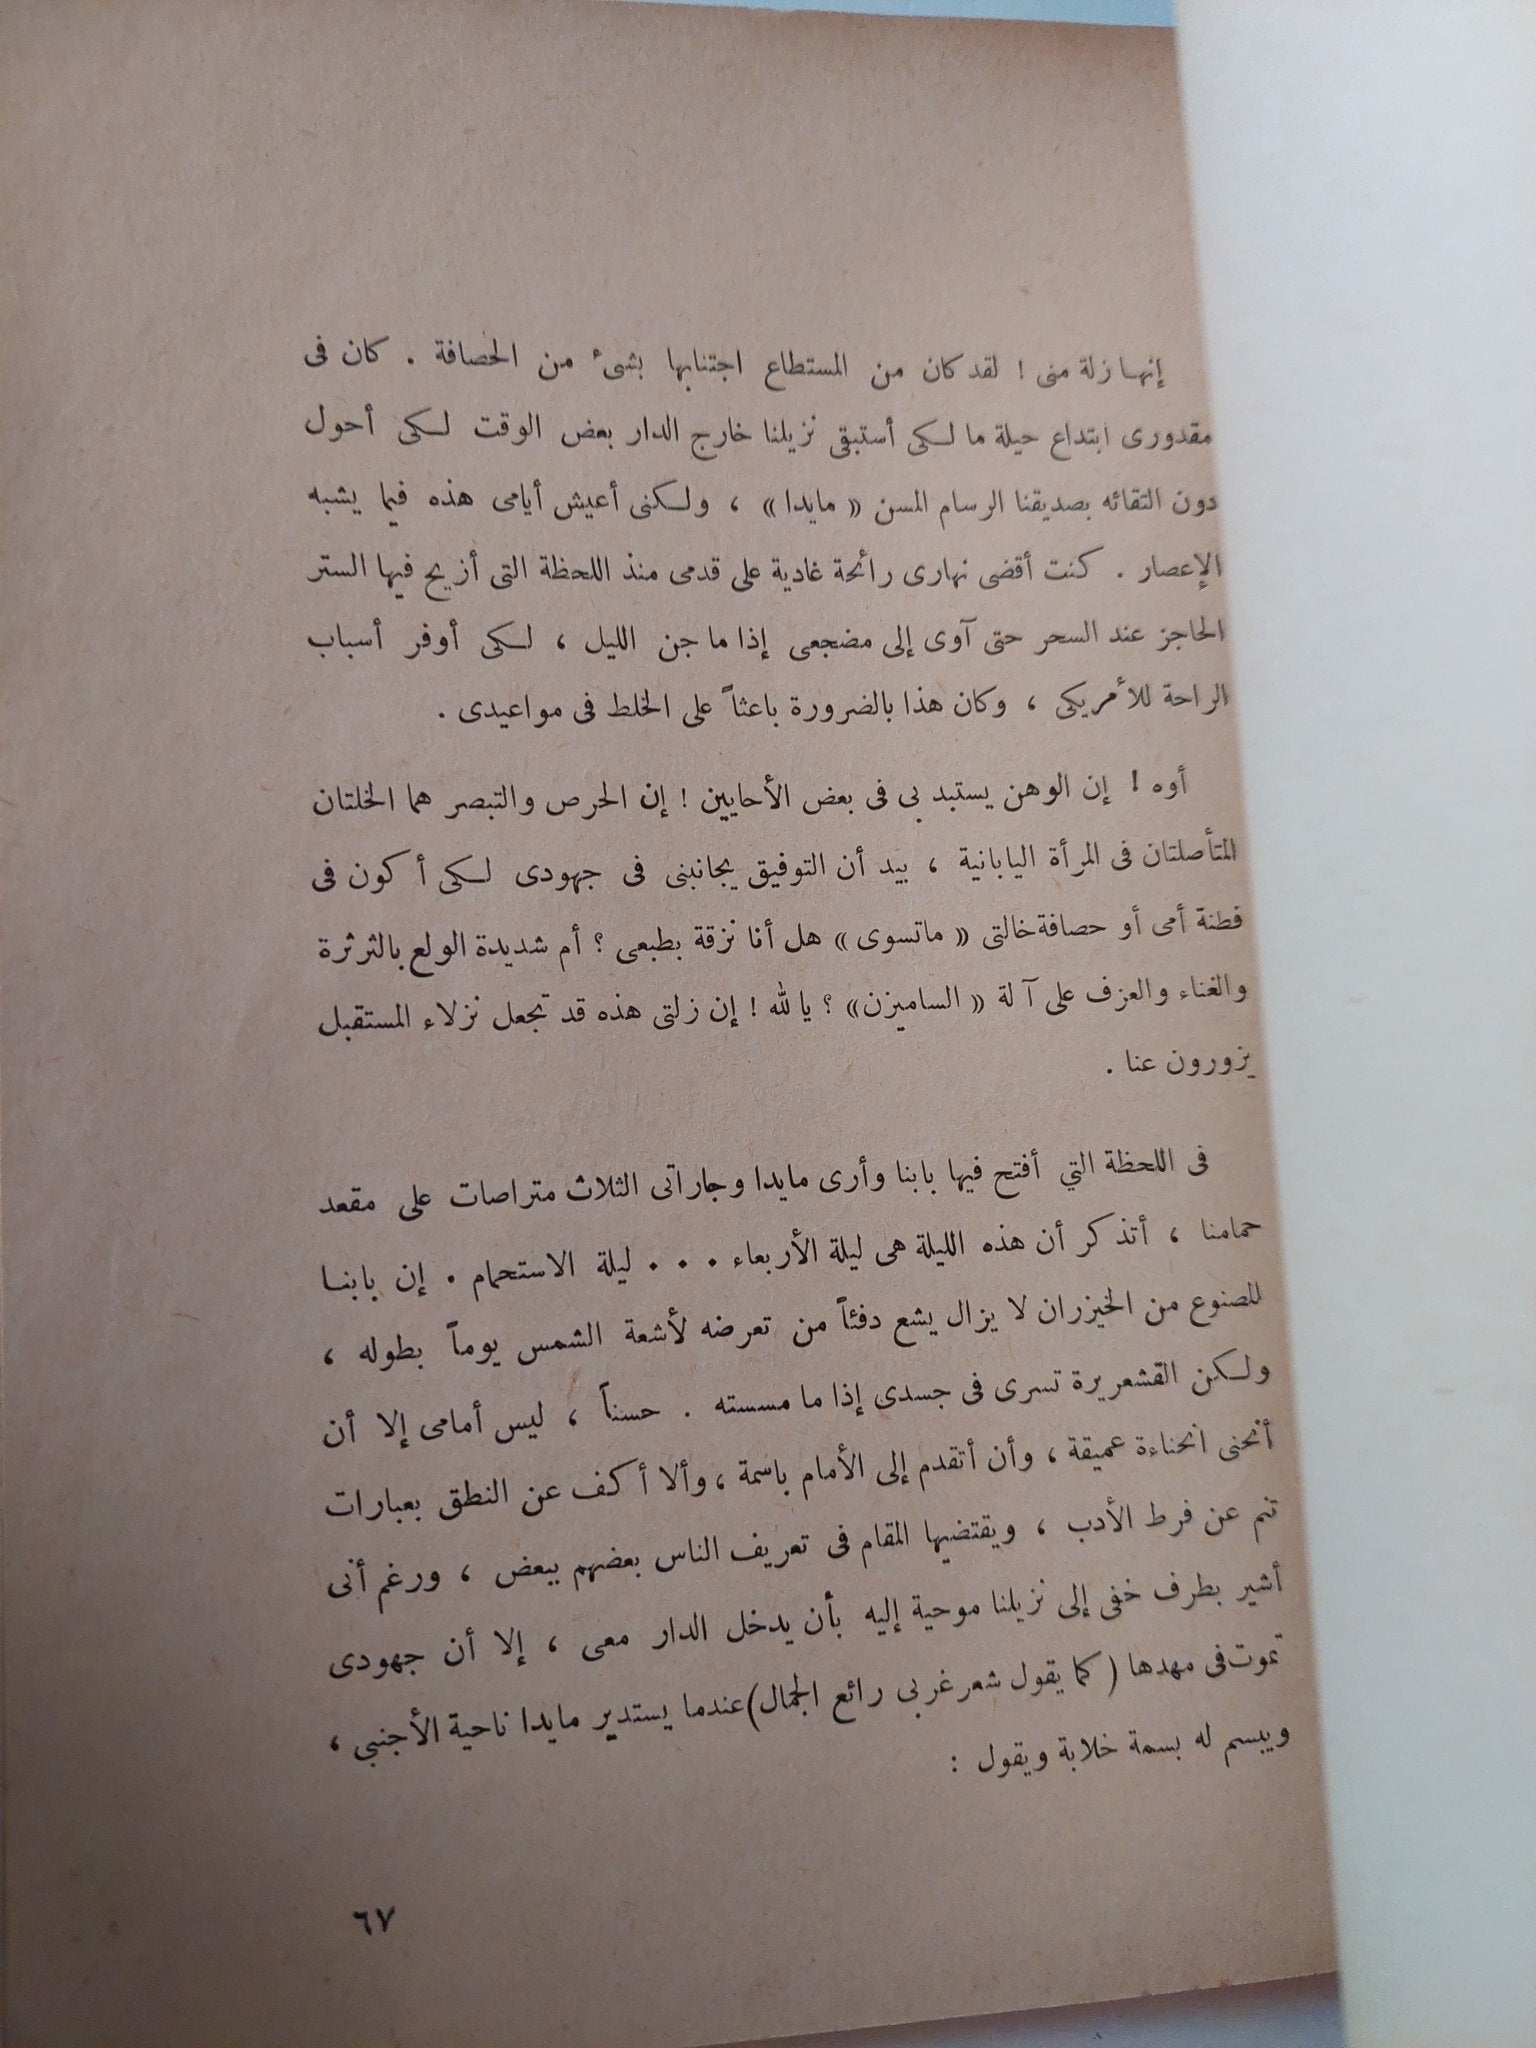 إنها زلة منى ! لقد كان من المستطاع اجتنابها بشىء من الحصافة . كان فى
مقدورى ابتداع حيلة ما لكى أستبقى نزيلنا خارج الدار بعض الوقت لكى أحول
دون التقائه بصديقنا الرسام المسن « مايدا » ، ولكنى أعيش أيامى هذه فيما يشبه
الإعصار . كنت أقضى نهارى رائحة غادية على قدمى منذ اللحظة التى أزيح فيها الستر
الحاجز عند السحر حتى آوى إلى مضجعى إذا ما جن الليل ، لكى أوفر أسباب
الراحة للأمريكى ، وكان هذا بالضرورة باعثاً على الخلط فى مواعيدى .
أوه ! إن الوهن يستبد بى فى بعض الأحايين ! إن الحرص والتبصر هما الخلتان
المتأصلتان فى المرأة اليابانية ، بيد أن التوفيق يجانبنى فى جهودى لكى أكون فى
فطنة أمى أو حصافة خالتى « ماتسوى » هل أنا نزقة بطبعى ؟ أم شديدة الولع بالثرثرة
والغناء والعزف على آلة « الساميزن » ؟ يالله ! إن زلتى هذه قد تجعل نزلاء المستقبل
يزورون عنا .
فى اللحظة التي أفتح فيها بابنا وأرى مايدا وجاراتى الثلاث متراصات على مقعد
حمامنا ، أتذكر أن هذه الليلة هى ليلة الأربعاء . . . ليلة الاستحمام . إن بابنا
للصنوع من الخيزران لا يزال يشع دفئاً من تعرضه لأشعة الشمس يوماً بطوله ،
ولكن القشعريرة تسرى فى جسدى إذا ما مسسته . حسناً ، ليس أمامى إلا أن
أنحنى انحناءة عميقة ، وأن أتقدم إلى الأمام باسمة ، وألا أكف عن النطق بعبارات
تنم عن فرط الأدب ، ويقتضيها المقام فى تعريف الناس بعضهم ببعض ، ورغم أنى
أشير بطرف خفى إلى نزيلنا موحية إليه بأن يدخل الدار معى ، إلا أن جهودى
تموت فى مهدها ( كما يقول شعر غربى رائع الجمال ) عندما يستدير مايدا ناحية الأجنبي ،
ويبسم له بسمة خلابة ويقول :
٦٧